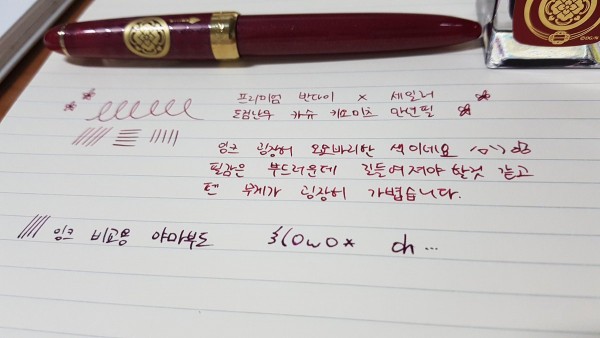 프리미엄 반다이 × 세일러
도검난무 카슈 키요미츠 만년필
잉크 굉장히 오묘바리한 색이네요
필감은 부드러운데 길들여져야 할것 같고
펜 무게가 굉장히 가볍습니다.
잉크 비교용 야마부도 ξ(OwO* ch...